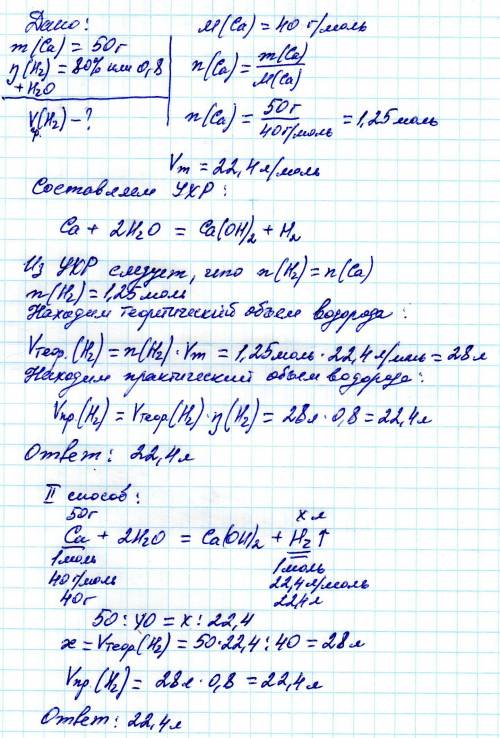 Дано:
m(Ca) = 50г
η(H₂) = 80% или 0,8
+H₂O
Vпр.(H₂) - ?
M(Ca) = 40 г/моль
n(Ca) = m(Ca)/M(Ca)
n(Ca) = 50г/40г/моль = 1,25 моль
Vm = 22,4 л/моль
Составляем УХР:
Ca + 2H₂O = Ca(OH)₂ + H₂
Из УХР следует, что n(H₂) = n(Ca)
n(H₂) = 1,25 моль
Находим теоретический объем водорода:
Vтеор.(H₂) = n(H₂) · Vm = 1,25 моль · 22,4 л/моль = 28л
Находим практический объем водорода:
Vпр(H₂) = Vтеор.(H₂) · η(H₂) = 28л · 0,8 = 22,4л
Ответ: 22,4л
II способ:
50г x л
Ca + 2H₂O = Ca(OH)₂ + H₂↑
1моль 1моль
40г/моль 22,4л/моль
40г 22,4л
50 : 40 = x : 22,4
x = Vтеор.(H₂) = 50·22,4 : 40 = 28л
Vпр.(H₂) = 28л · 0,8 = 22,4л
Ответ: 22,4л